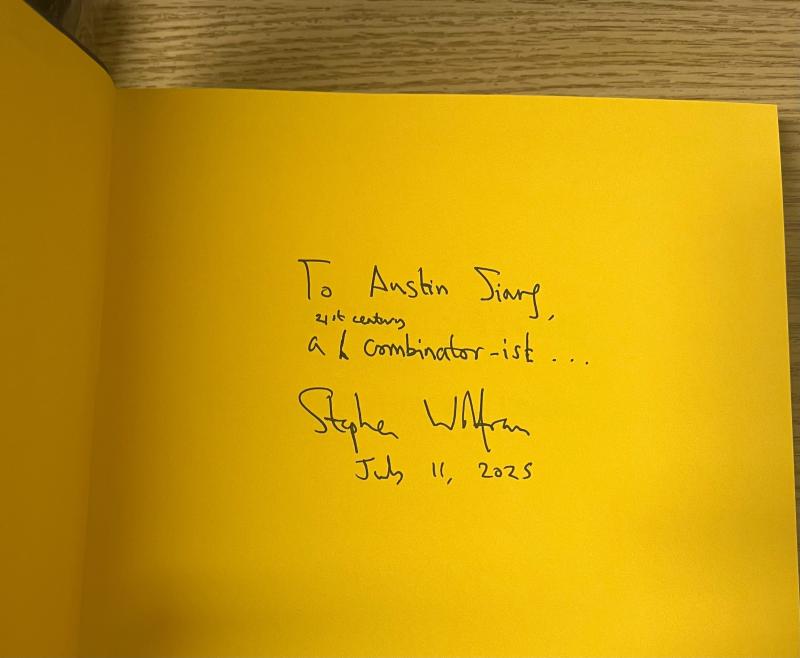 To Austin Jiang,
21st century
a combinator-ist ...
Stephen Wolfram
July 11, 2025